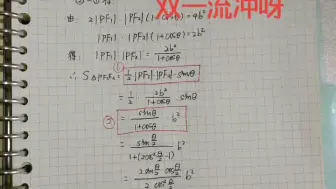 双一流冲呀
由: 2|PF₁|·|PF₂|(1+cosθ)=4b²
|PF₁|·|PF₂|(1+cosθ)=2b²
得: |PF₁||PF₂|=2b²/(1+cosθ)
①
∴ S△PF₁F₂=1/2|PF₁|·|PF₂|·sinθ
=1/2·2b²/(1+cosθ)·sinθ
② =sinθ/(1+cosθ)·b²
=b²
=2sinθ/2 cosθ/2 b²